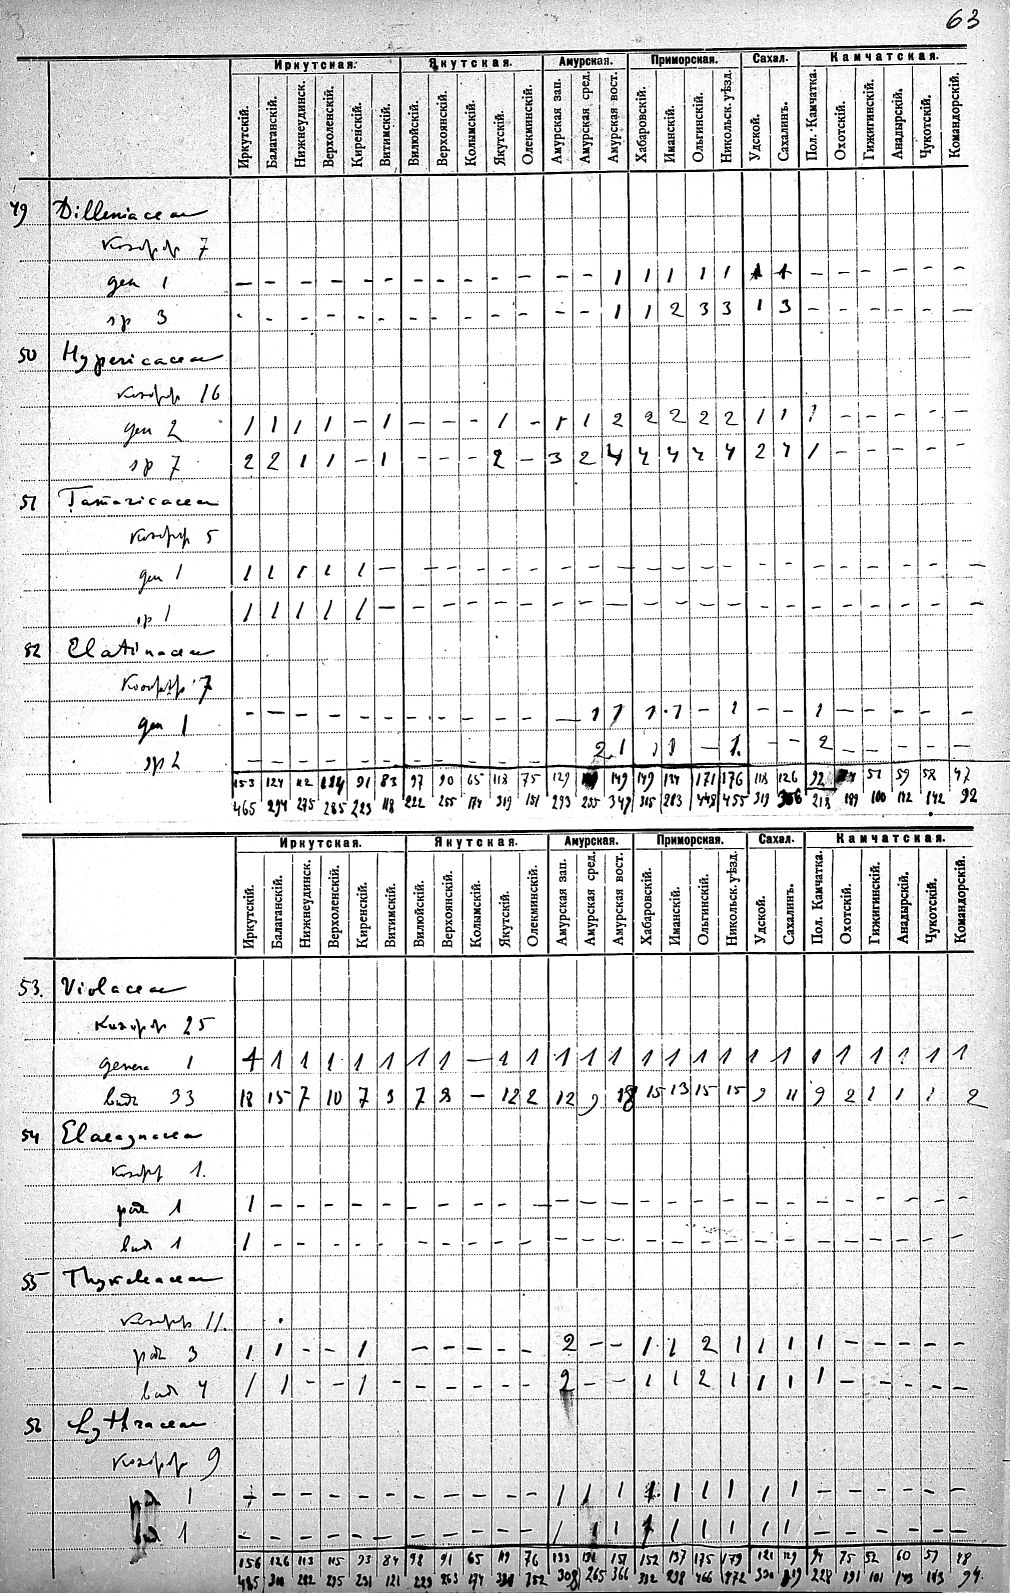 63
Иркутская. Якутская. Амурская. Приморская. Сахал. Камчатская.
Иркутскій. Балаганскій. Нижнеудинск. Верхоленскій. Киренскій. Витимскій. Вилюйскій. Верхоянскій. Колымскій. Якутскій. Олекминскій. Амурская зап. Амурская сред. Амурская вост. Хабаровскій. Иманскій. Ольгинскій. Никольск. уѣзд. Удской. Сахалинъ. Пол. Камчатка. Охотскій. Гижигинскій. Анадырскій. Чукотскій. Командорскій.
49 Dilleniaceae
Коэфф 7
gen 1 – – – – – – – – – – – – – 1 1 1 1 1 1 1 – – – – – –
sp 3 – – – – – – – – – – – – – 1 1 2 3 3 1 3 – – – – – –
50 Hypericaceae
Коэфф 16
gen 2 1 1 1 1 – 1 – – – 1 – 1 1 2 2 2 2 2 1 1 1 – – – – –
sp 7 2 2 1 1 – 1 – – – 2 – 3 2 4 4 4 4 4 2 4 1 – – – – –
51 Tamaricaceae
Коэфф 5
gen 1 1 1 1 1 1 – – – – – – – – – – – – – – – – – – – – –
sp 1 1 1 1 1 1 – – – – – – – – – – – – – – – – – – – – –
52 Elatinaceae
Коэфф 7
gen 1 – – – – – – – – – – – – 1 1 1 1 – 1 – – 1 – – – – –
sp 2 – – – – – – – – – – – 2 1 1 1 – 1 – – 2 – – – – –
153 124 112 114 91 83 97 90 65 118 75 129 149 149 134 171 176 118 126 92 51 59 58 47
465 294 275 285 223 118 222 255 174 319 151 293 255 347 315 283 448 455 319 306 218 189 100 142 92
Иркутская. Якутская. Амурская. Приморская. Сахал. Камчатская.
Иркутскій. Балаганскій. Нижнеудинск. Верхоленскій. Киренскій. Витимскій. Вилюйскій. Верхоянскій. Колымскій. Якутскій. Олекминскій. Амурская зап. Амурская сред. Амурская вост. Хабаровскій. Иманскій. Ольгинскій. Никольск. уѣзд. Удской. Сахалинъ. Пол. Камчатка. Охотскій. Гижигинскій. Анадырскій. Чукотскій. Командорскій.
53. Violaceae
Коэфф 25
genera 1 1 1 1 1 1 1 1 1 – 1 1 1 1 1 1 1 1 1 1 1 1 1 1 1 1 1
вид 33 18 15 7 10 7 3 7 8 – 12 2 12 9 18 15 13 15 15 9 11 9 2 1 1 1 2
54 Elaeagnaceae
Коэфф 1.
род 1 1 – – – – – – – – – – – – – – – – – – – – – – – – –
вид 1 1 – – – – – – – – – – – – – – – – – – – – – – – – –
55 Thymeleaceae
Коэфф 11.
род 3 1 1 – – 1 – – – – – 2 – – 1 1 2 1 1 1 1 – – – – –
вид 4 1 1 – – 1 – – – – – – 2 – – 1 1 2 1 1 1 1 – – – – –
56 Lythraceae
Коэфф 9
род 1 – – – – – – – – – – – 1 1 1 1 1 1 1 1 1 – – – – – –
вид 1 – – – – – – – – – – – 1 1 1 1 1 1 1 1 1 – – – – – –
156 126 113 115 93 84 98 91 65 119 76 133 151 152 137 175 179 121 129 94 75 52 60 59 48
485 282 295 231 121 229 263 174 308 265 366 332 298 466 228 191 101 143 143 94.